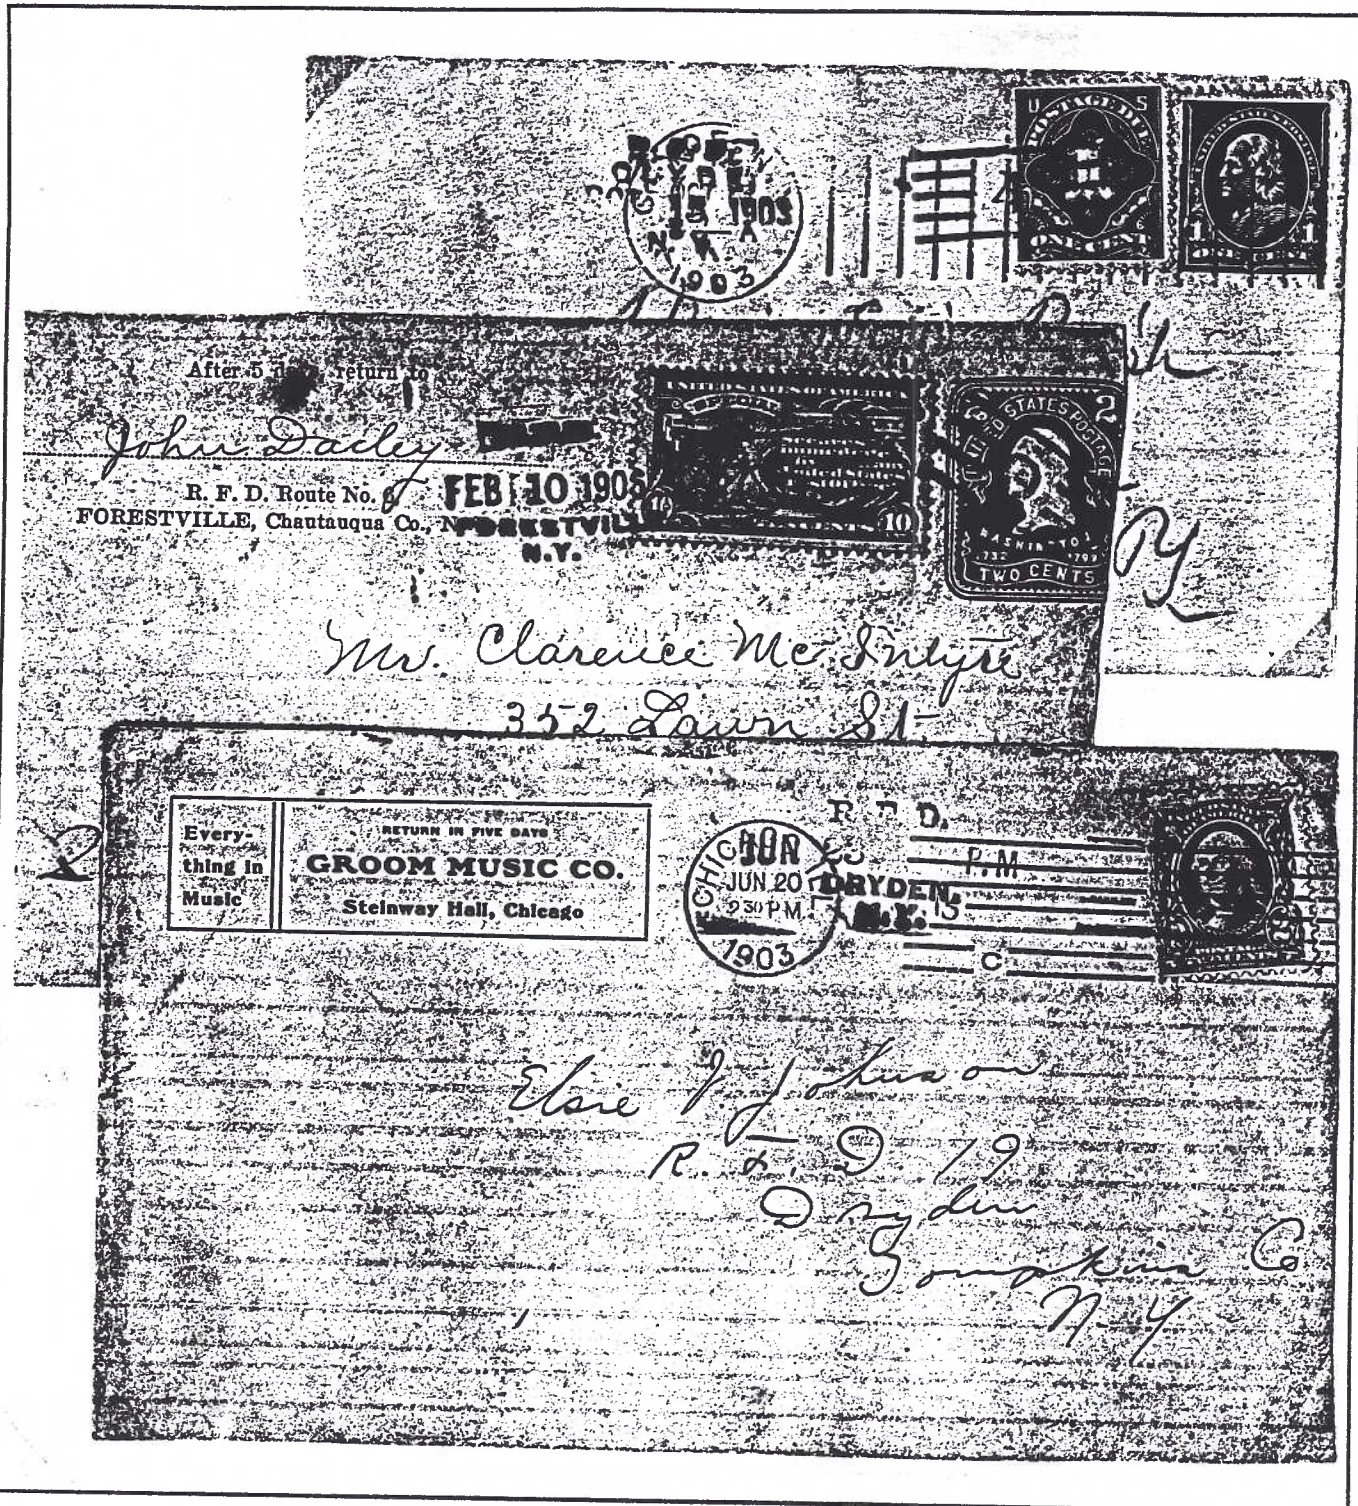 U S
POSTAGE DUE
ONE CENT
1 1
ONE CENT
15 1903
N. Y.
1903
N Y
After 5 days, return to
John Dacley
R. F. D. Route No. 6
FORESTVILLE, Chautauqua Co., N
FEB 10 190
FORESTVILL
N.Y.
UNITED STATES OF AMERICA
SPECIAL
10
CENTS
10
UNITED STATES POSTAGE
2
WASHINGTON
1732 1799
TWO CENTS
Mr. Clarence McIntyre
352 Lawn St
Every-
thing in
Music
RETURN IN FIVE DAYS
GROOM MUSIC CO.
Steinway Hall, Chicago
CHIC
JUN
JUN 20
2 30 PM
1903
R F D.
P.M
DRYDEN,
N.Y.
C
Elsie J. Johnson
R. F. D 19
Dryden
Tompkins Co
N. Y